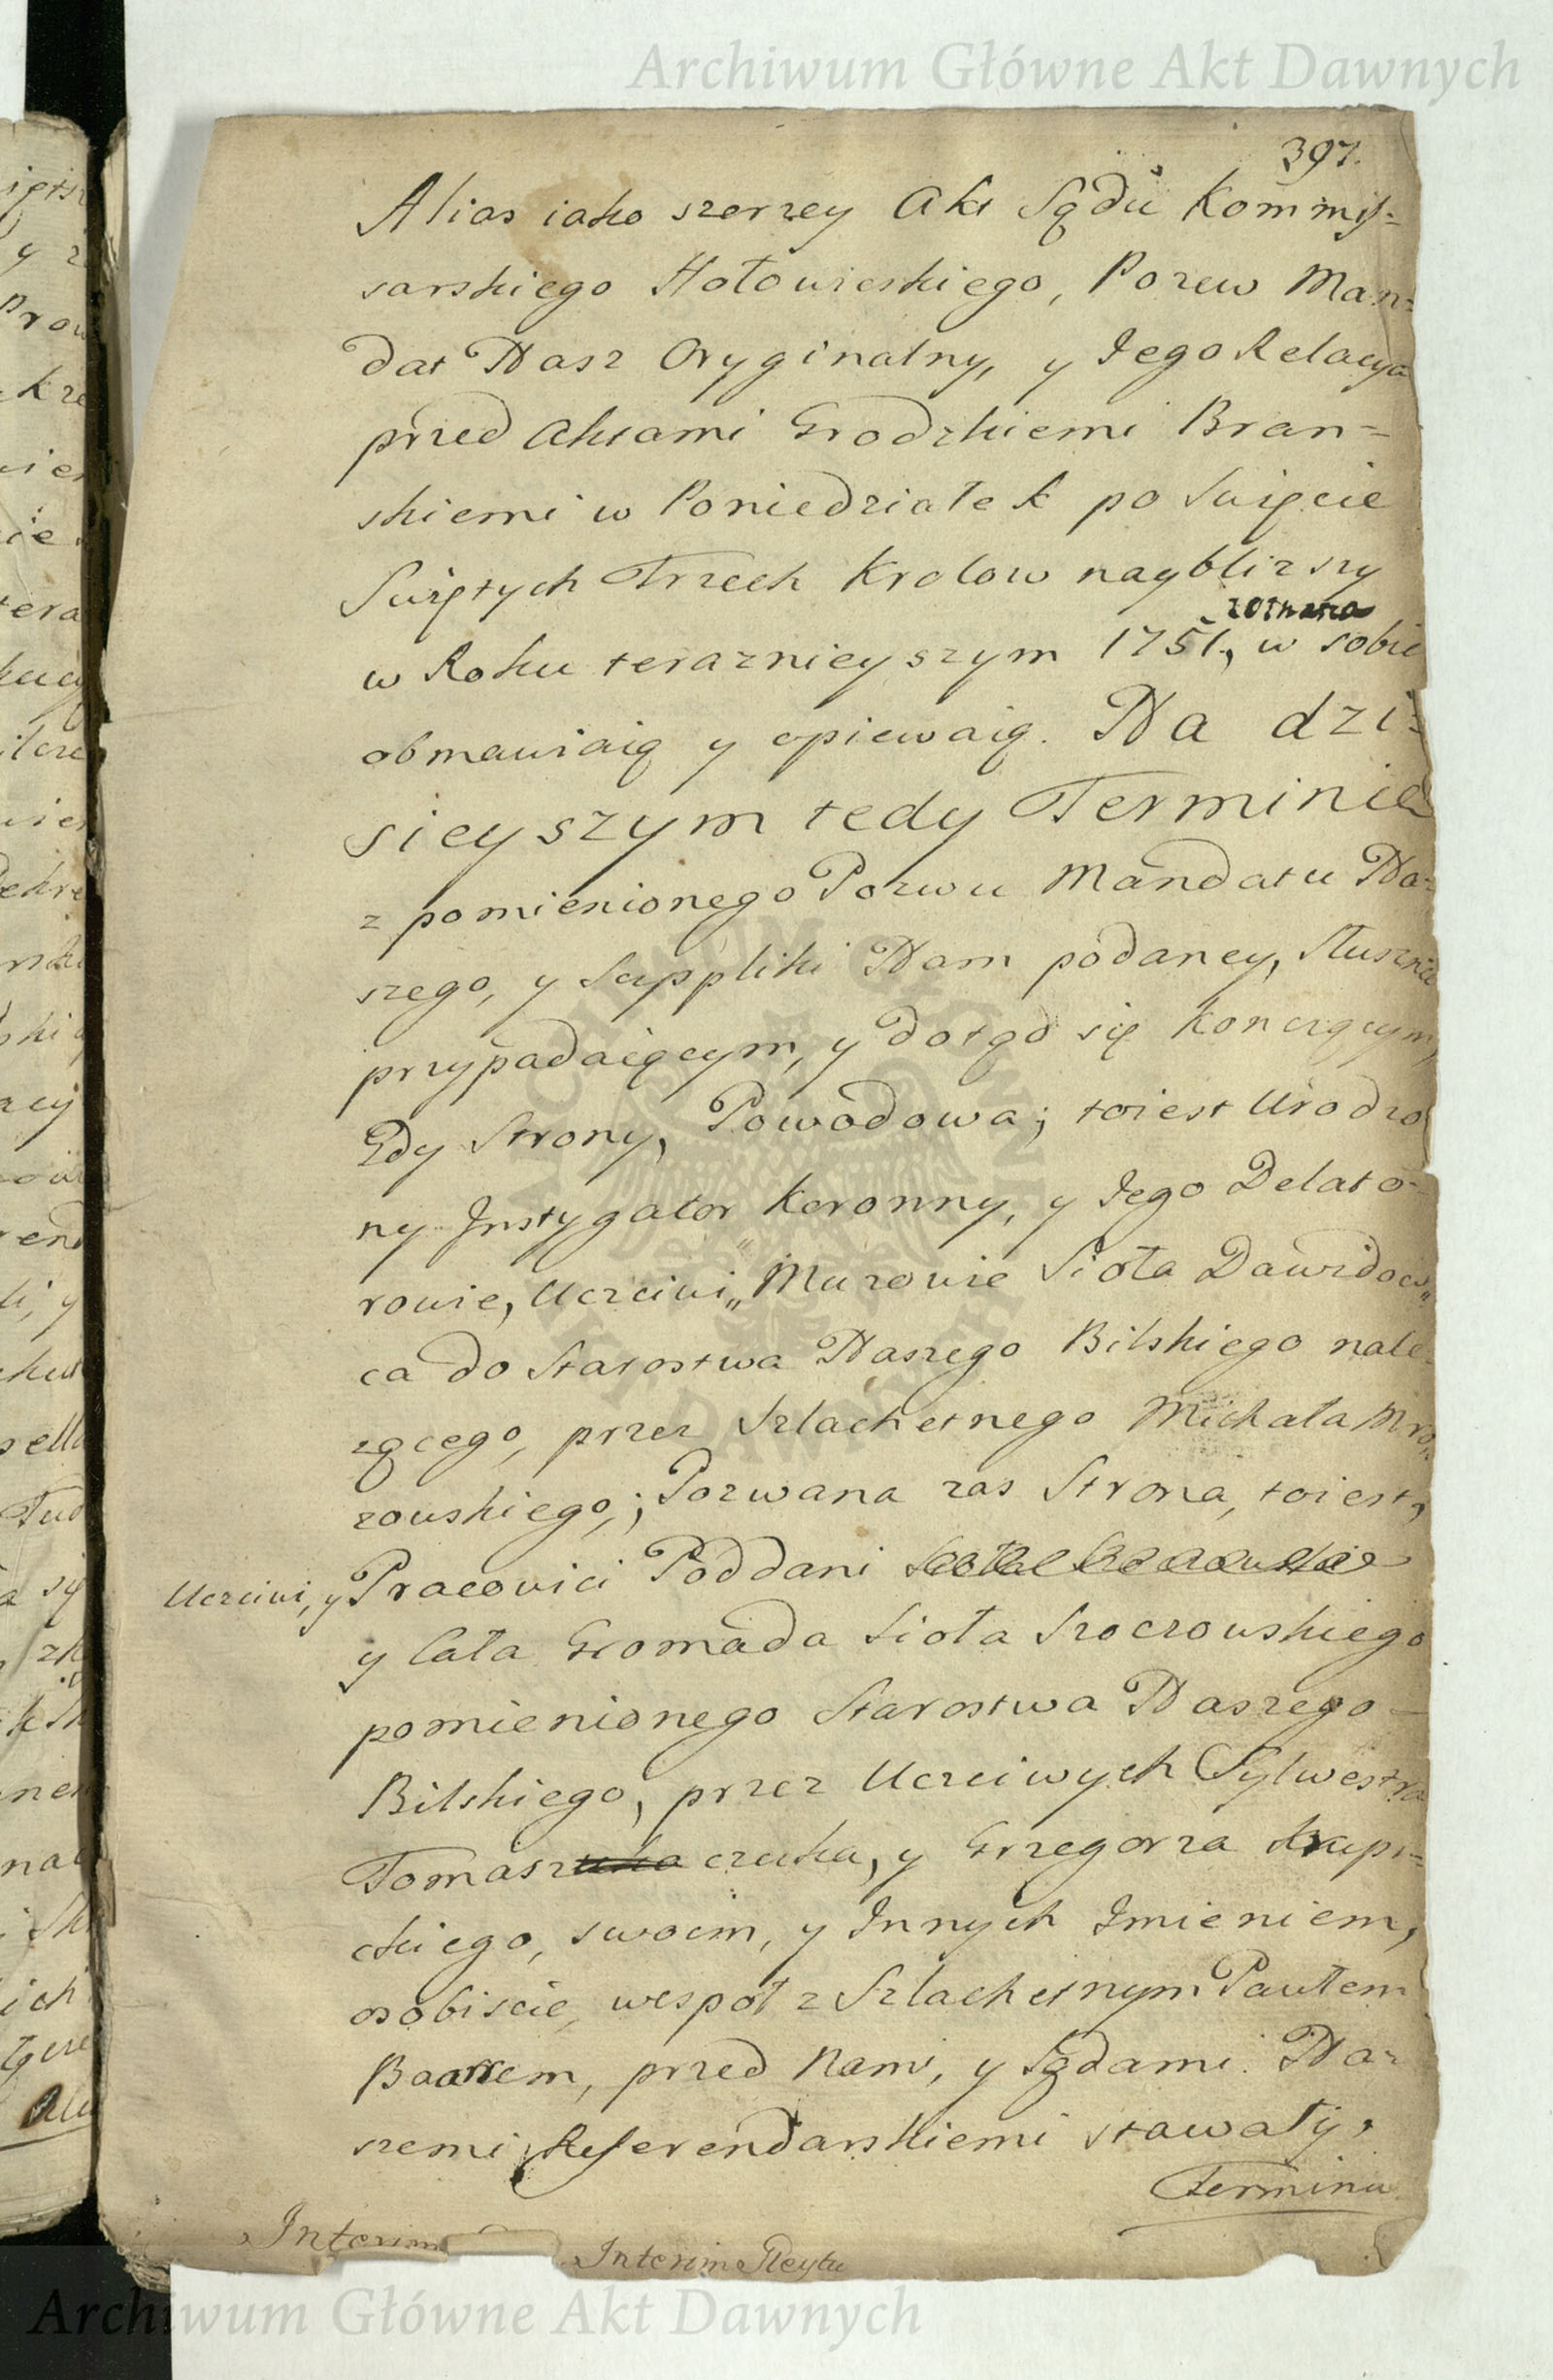 Archiwum Główne Akt Dawnych
397.
Alias iako szerzey Akt Sądu Kommis-
sarskiego Hołowieskiego, Pozew Man-
dat Nasz Oryginalny, y Jego Relacya
przed Aktami Grodzkiemi Bran=
skiemi w Poniedziałek po Swięcie
Swiętych Trzech Krolow nayblizszy
zeznana
w Roku teraznieyszym 1751., w sobie
obmawiaią y opiewaią. Na dzi=
sieyszym tedy Terminie
z pomienionego Pozwu Mandatu Na=
szego, y Suppliki Nam podaney, słusznie
przypadaiącym, y dotąd się konczącym,
Gdy Strony, Powodowa; toiest Urodzo
ny Instygator Koronny, y Jego Delato-
rowie, Uczciwi „Muzowie Sioła Dawidow„
ca do Starostwa Naszego Bilskiego nale-
zącego, przez Szlachetnego Michała Mro„
zowskiego,; Pozwana zas Strona, toiest,
Uczciwi, y Pracowici Poddani
y Cała Gromada Sioła Szoczowskiego
pomienionego Starostwa Naszego
Bilskiego, przez Uczciwych Sylwestra
Tomaszuka czuka, y Grzegorza Krupi=
ckiego, swoim, y Innych Imieniem,
osobiscie, wespoł z Szlachetnym Pawłem
przed Nami, y Sądami Na=
szemi Referendarskiemi stawały,
Terminu
Interim
Interim Gleytu
Archiwum Główne Akt Dawnych